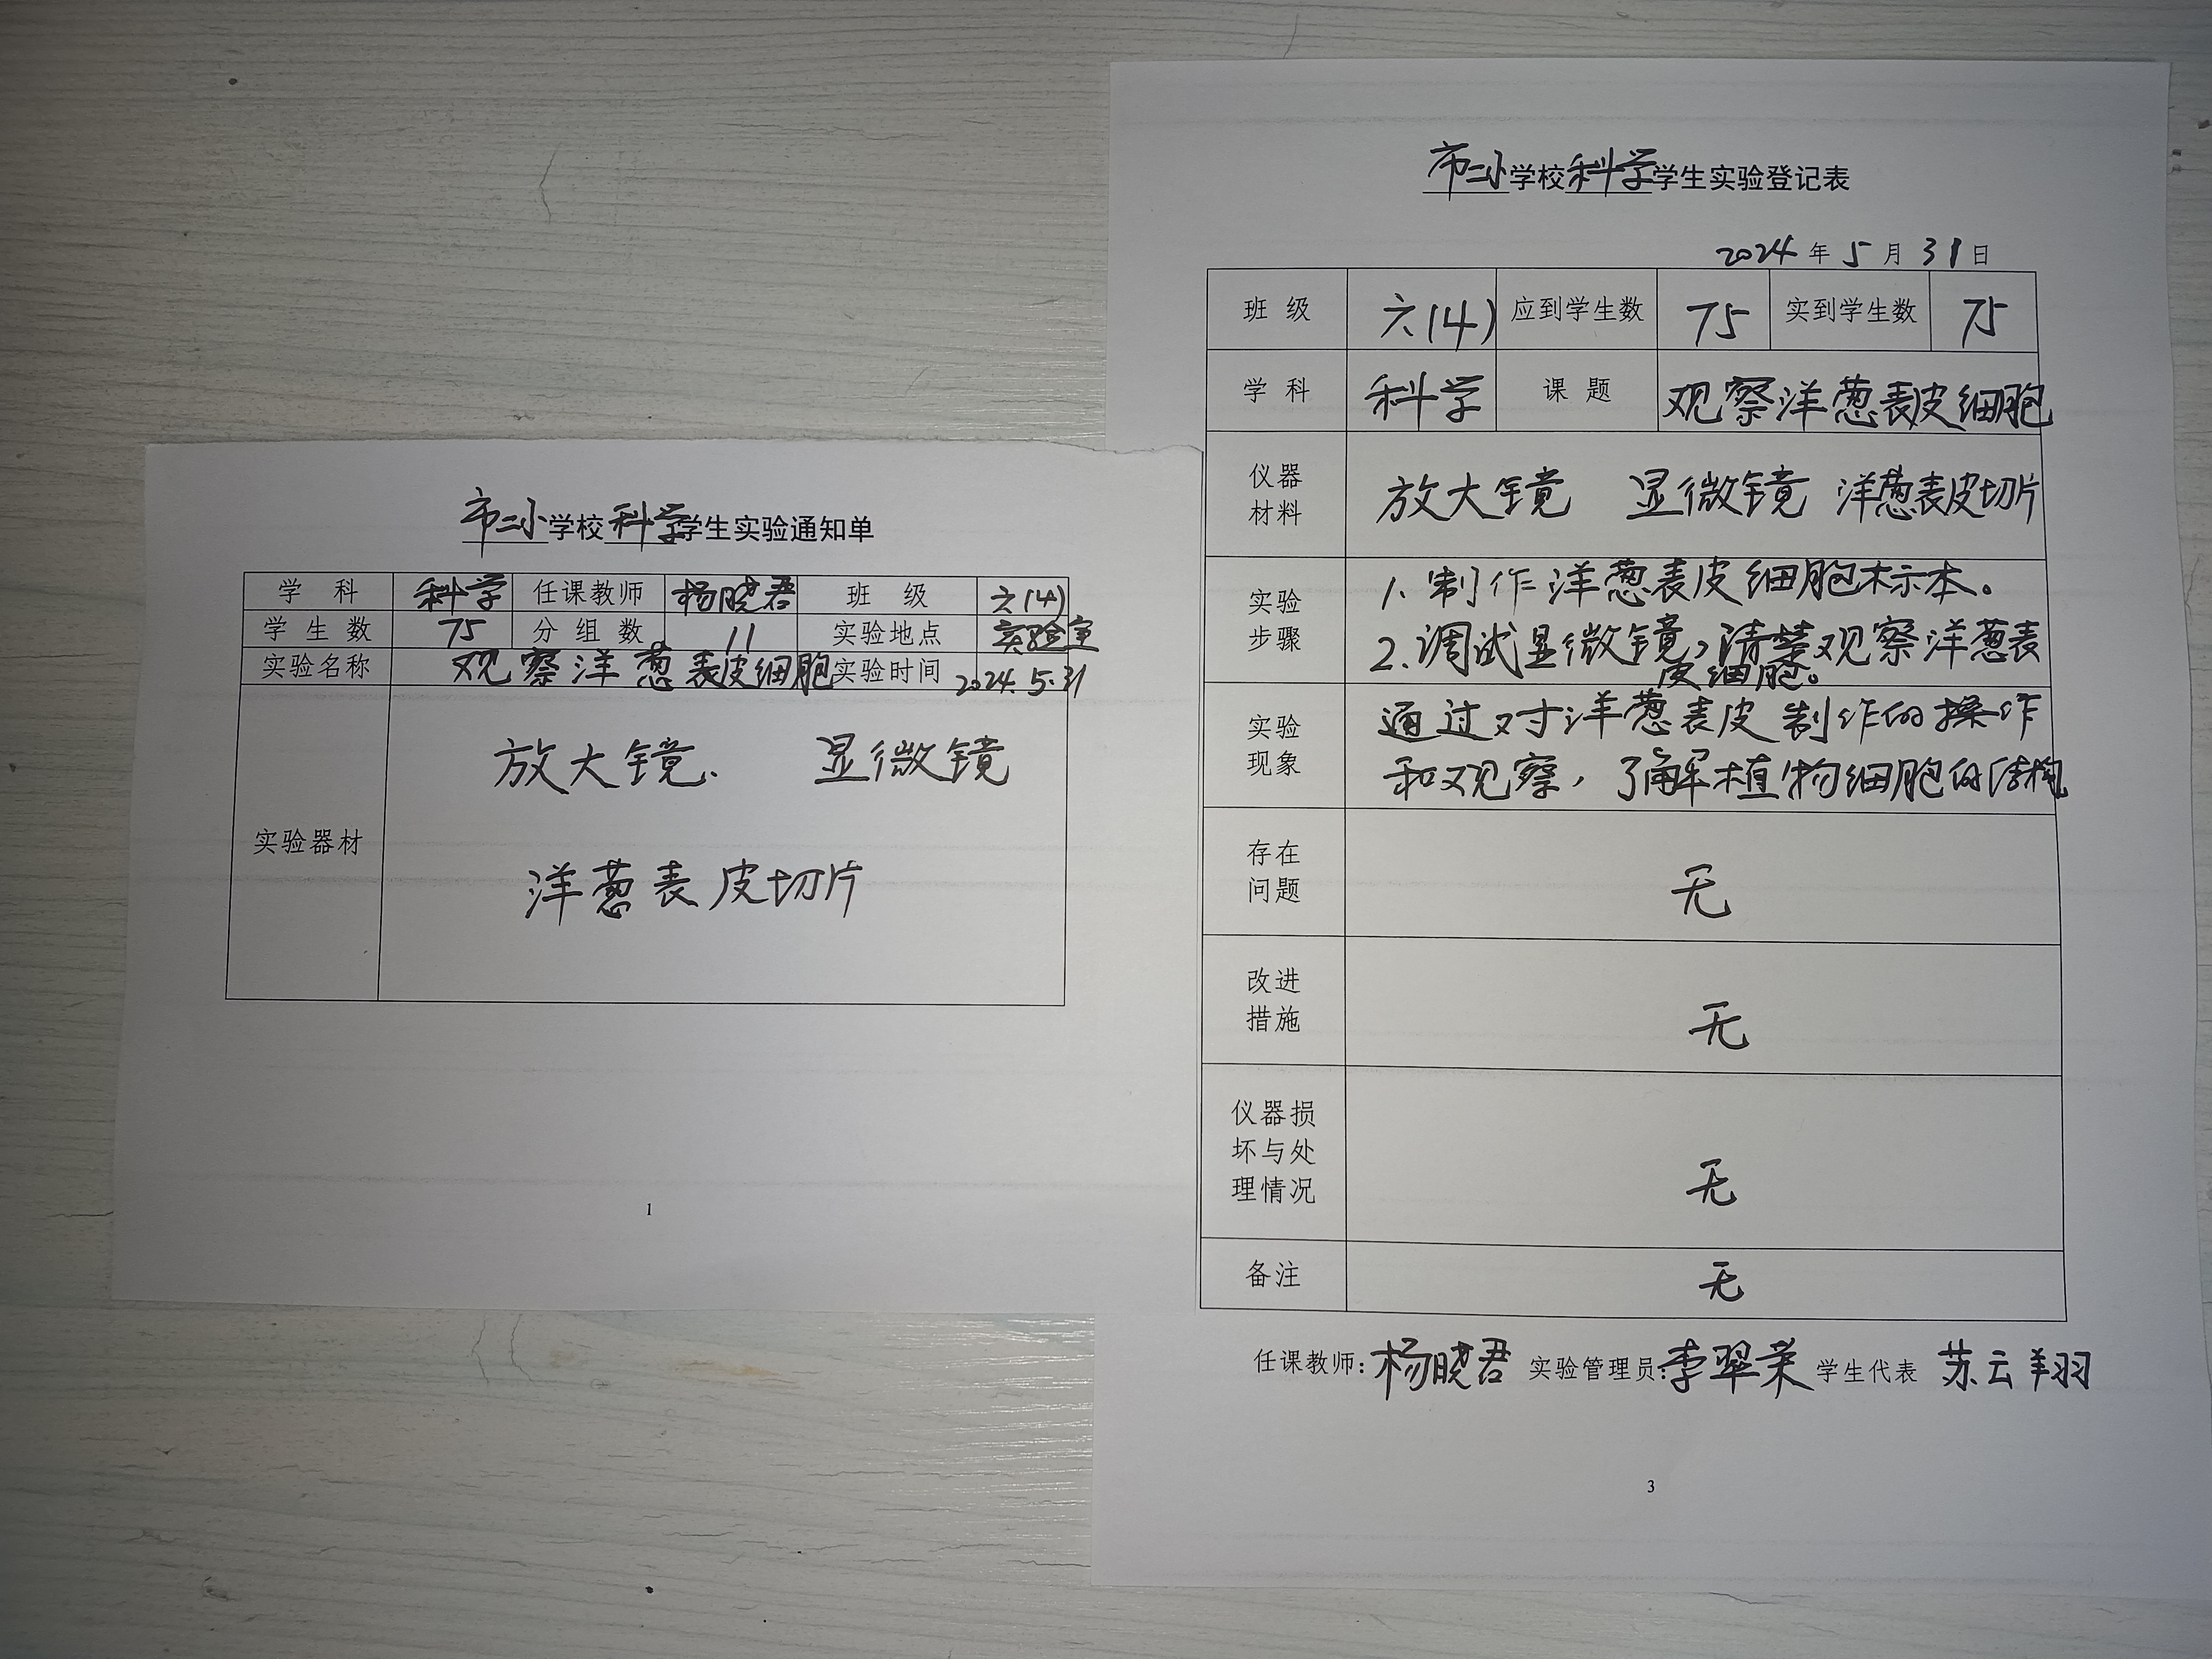 市二小学校科学学生实验通知单
学科 科学 任课教师 杨晓君 班级 六(4)
学生数 75 分组数 11 实验地点 实验室
实验名称 观察洋葱表皮细胞 实验时间 2024.5.31
实验器材
放大镜. 显微镜
洋葱表皮切片
1
市二小学校科学学生实验登记表
2024年5月31日
班级 六(4) 应到学生数 75 实到学生数 75
学科 科学 课题 观察洋葱表皮细胞
仪器
材料
放大镜 显微镜 洋葱表皮切片
实验
步骤
1.制作洋葱表皮细胞标本。
2.调试显微镜,清楚观察洋葱表
皮细胞。
实验
现象
通过对洋葱表皮制作的操作
和观察,了解植物细胞的结构
存在
问题
无
改进
措施
无
仪器损
坏与处
理情况
无
备注 无
任课教师:杨晓君 实验管理员:李翠荣 学生代表 苏云翔
3